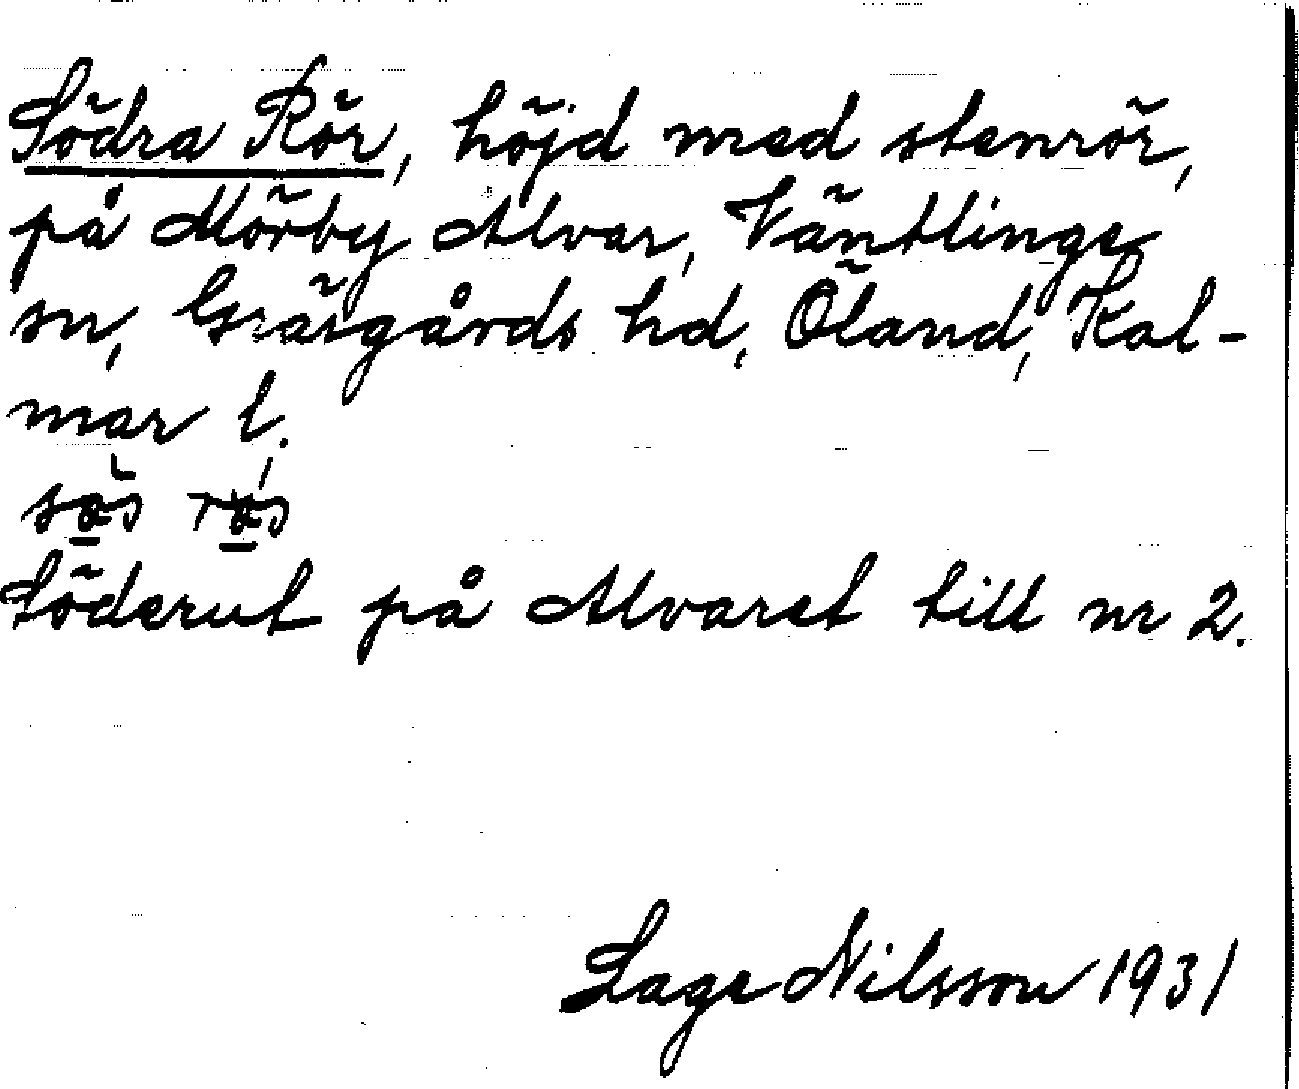 Södra Rör, höjd med stenrör,
på Mörby Alvar, Väntlinge
sn, Gräsgårds hd, Öland, Kal-
mar l.
Söderut på Alvaret till nr 2.
Lage Nilsson 1931